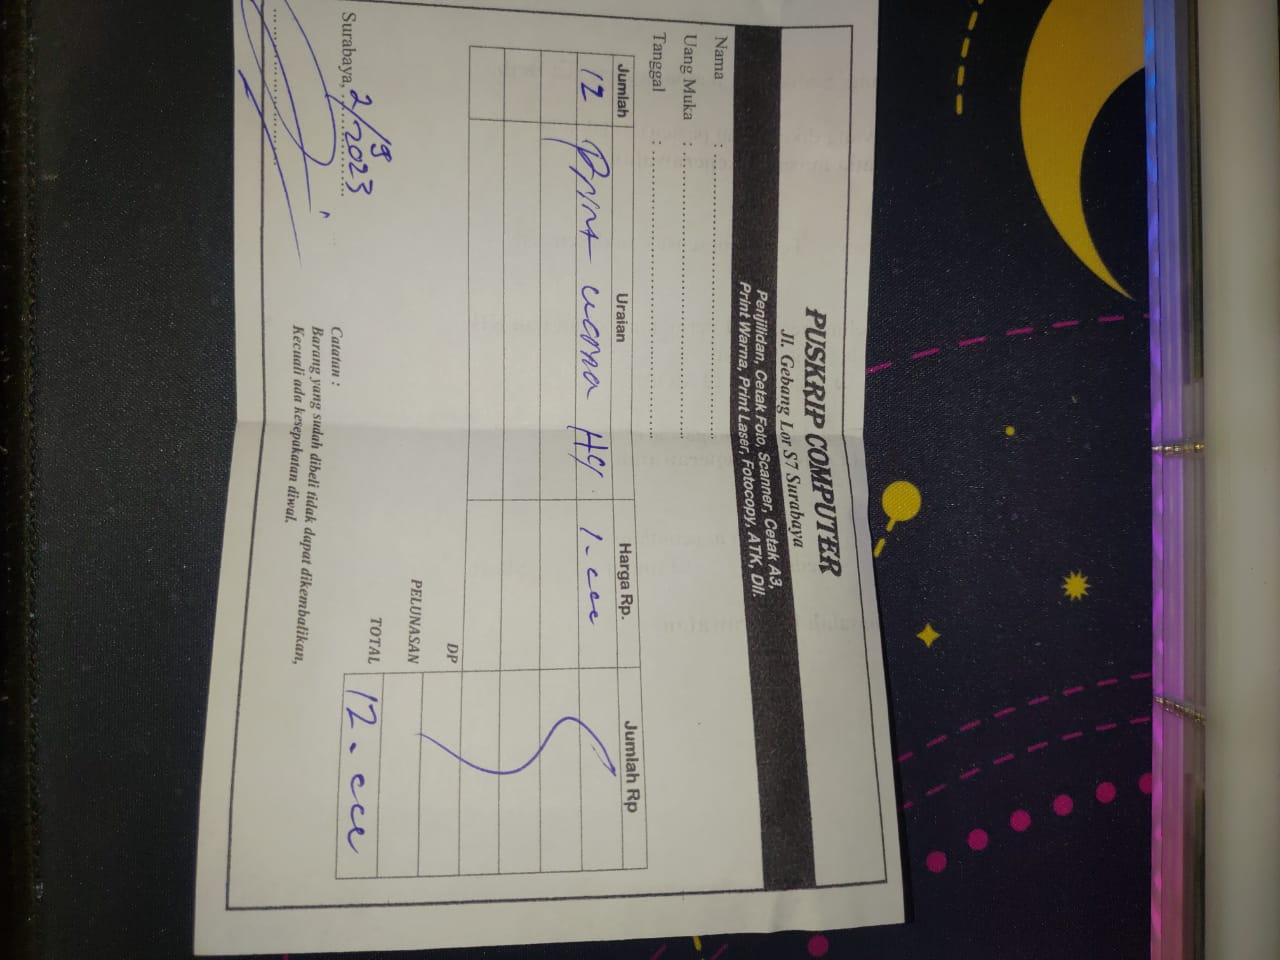 PUSKRIP COMPUTER
Jl. Gebang Lor S7 Surabaya
Penjilidan, Cetak Foto, Scanner, Cetak A3,
Print Warna, Print Laser, Fotocopy, ATK, Dll.
Nama :
Uang Muka :
Tanggal :
Jumlah Uraian Harga Rp. Jumlah Rp
12 Print warna
DP
PELUNASAN
TOTAL 12.
Surabaya, 2/9 2023
Catatan :
Barang yang sudah dibeli tidak dapat dikembalikan,
Kecuali ada kesepakatan diwal.